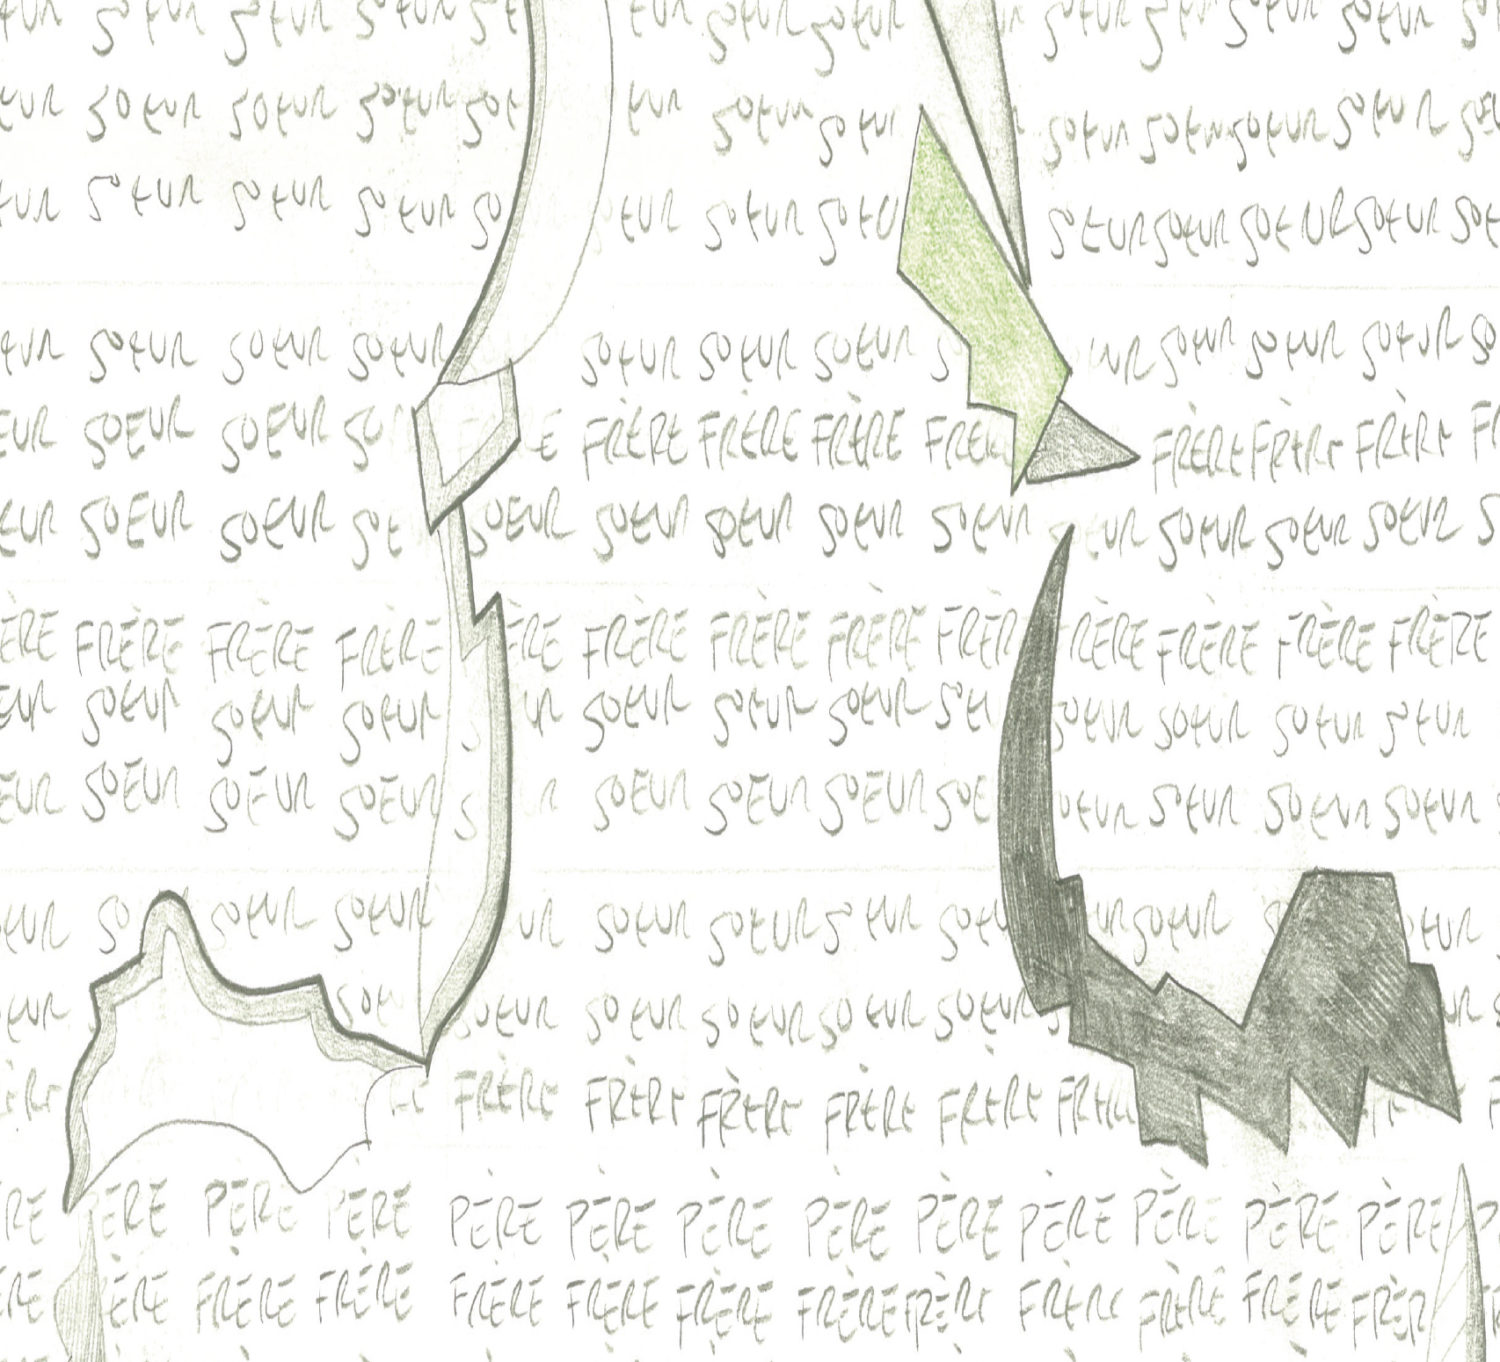 EUR SOEUR SOEUR SOEUR SOE SOEUR SOEUR SOEUR SOEUR SOEUR SOEUR
EUR SOEUR SOEUR SOEUR SOE EUR SOEUR SOEUR SOEUR SOEUR SOEUR SOEUR SOE
EUR SOEUR SOEUR SOEUR SO EUR SOEUR SOEU SOEUR SOEUR SOEUR SOEUR SOE
EUR SOEUR SOEUR SOEUR SOEUR SOEUR SOEUR S UR SOEUR SOEUR SOEUR SO
EUR SOEUR SOEUR SO E FRÈRE FRÈRE FRÈRE FRÈRE FRÈRE FRÈRE FRÈRE FR
EUR SOEUR SOEUR SOE SOEUR SOEUR SOEUR SOEUR SOEUR EUR SOEUR SOEUR SOEUR S
ÈRE FRÈRE FRÈRE FRÈRE ÈRE FRÈRE FRÈRE FRÈRE FRÈR FRÈRE FRÈRE FRÈRE FRÈRE
EUR SOEUR SOEUR SOEUR S UR SOEUR SOEUR SOEUR SOE SOEUR SOEUR SOEUR SOEUR
EUR SOEUR SOEUR SOEUR S R SOEUR SOEUR SOEUR SOE OEUR SOEUR SOEUR SOEUR
EUR SO SOEUR SOEUR UR SOEUR SOEUR SOEUR SOEU UR SOEUR S OEUR
EUR SOE SOEUR SOEUR SOEUR SOEUR SOEUR UR S
ÈRE E FRÈRE FRÈRE FRÈRE FRÈRE FRÈRE FRÈRE
ÈRE PÈRE PÈRE PÈRE PÈRE PÈRE PÈRE PÈRE PÈRE PÈRE PÈRE PÈRE PÈRE P
ÈRE ÈRE FRÈRE FRÈRE FRÈRE FRÈRE FRÈRE FRÈRE FRÈRE FRÈRE FRÈRE FRÈRE FRÈR